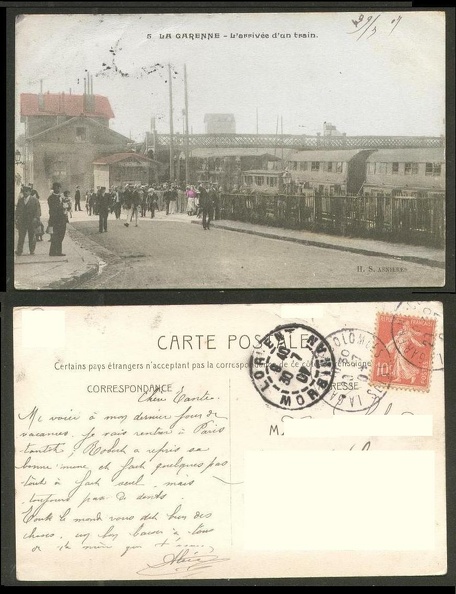 5 LA GARENNE - L'arrivée d'un train.
H. S. ASNIÈRES
CARTE POSTALE
Certains pays étrangers n'acceptent pas la correspondance de ce côté
CORRESPONDANCE
ADRESSE
M.
Chère Tante
Me voici à mes derniers jours de
vacances. Je vais rentrer à Paris
tantôt. Robert a repris sa
bonne mine, et fait quelques pas
tout à fait seul, mais
toujours pas de dents.
Toute le monde vous dit bien des
choses, un bon baiser à tous
LORIENT
MORBIHAN
10